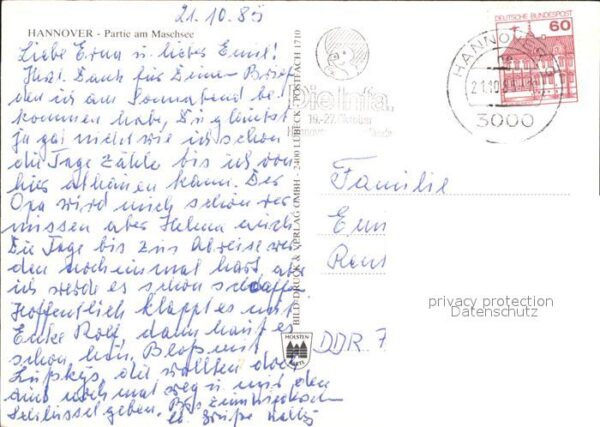 21.10.85
HANNOVER - Partie am Maschsee
Liebe Erna u. lieber Emil!
Hrzl. Dank für Deinen Brief
den ich am Sonnabend be-
kommen habe, Du glaubst
ja gar nicht wie ich schon
die Tage Zähle bis ich von
hier abhauen kann. Der
Opa wird mich schon ver
missen aber Helma auch
Die Tage bis zur Abreise wer
den noch einmal hart, aber
ich werde es schon schaffen
Hoffentlich klappt es mit
Rolf, dann haut es
schon hin. Bloß mit
die wollten doch
auch noch mal weg u. mir den
Schlüssel geben. Bis zum
Grüße
BILD DRUCK & VERLAG GMBH · 2400 LÜBECK · POSTFACH 1710
HOLSTEN
Die Infa.
19.-27. Oktober
DEUTSCHE BUNDESPOST
60
HANNOVER
21.10.85
3000
Familie
DDR. 7
privacy protection
Datenschutz